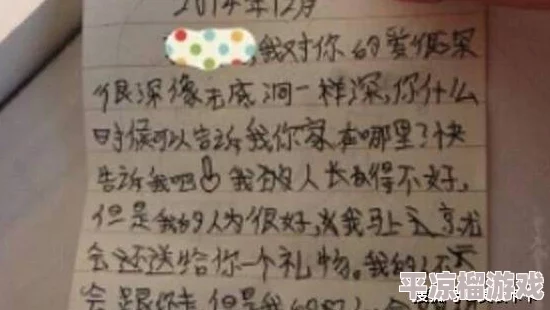 2014年12月
,我对你的爱很深
很深像无底洞一样深,你什么
时候可以告诉我你家在哪里了快
告诉我吧 我的人长得不好,
但是我的人为很好,我马上
会还送给你一个礼物。我的
会跟你走 但是我的
平凉榴游戏